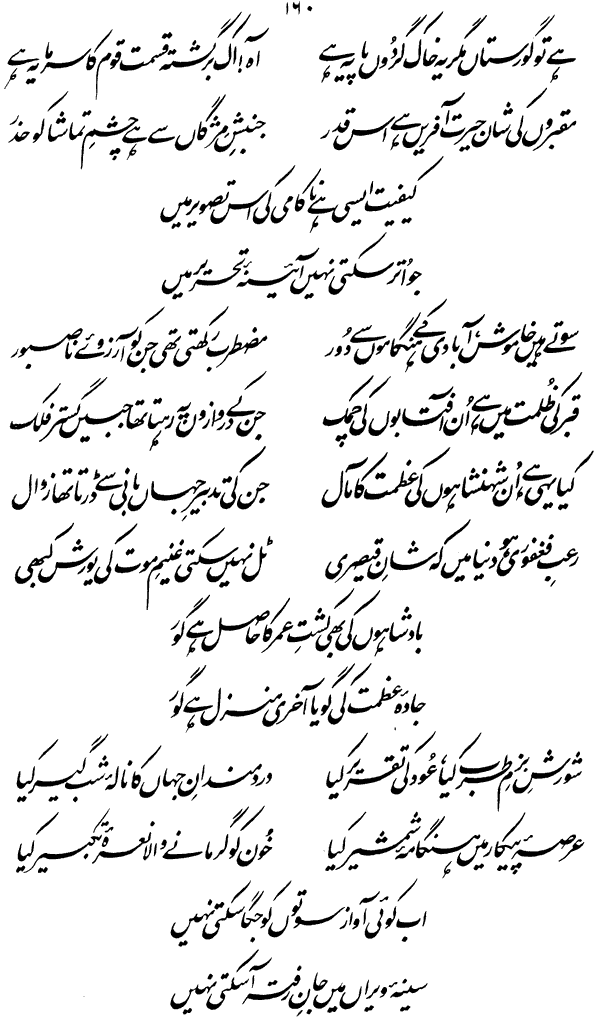 ۱۶۰
ہے تو گورستاں مگر یہ خاک گردوں پایہ ہے آہ! اک برگشتہ قسمت قوم کا سرمایہ ہے
مقبروں کی شان حیرت آفریں ہے اس قدر جنبشِ مژگاں سے ہے چشمِ تماشا کو حذر
کیفیت ایسی ہے ناکامی کی اس تصویر میں
جو اتر سکتی نہیں آئینۂ تحریر میں
سوتے ہیں خاموش، آبادی کے ہنگاموں سے دُور مضطرب رکھتی تھی جن کو آرزوئے ناصبور
قبر کی ظُلمت میں ہے اُن آفتابوں کی چمک جن کے دروازوں پہ رہتا تھا جبیں گستر فلک
کیا یہی ہے اُن شہنشاہوں کی عظمت کا مآل جن کی تدبیرِ جہاں بانی سے ڈرتا تھا زوال
رعبِ فغفوری ہو دنیا میں کہ شانِ قیصری ٹل نہیں سکتی غنیمِ موت کی یورش کبھی
بادشاہوں کی بھی کشتِ عمر کا حاصل ہے گور
جادۂ عظمت کی گویا آخری منزل ہے گور
شورشِ بزمِ طرب کیا، عُود کی تقریر کیا دردمندانِ جہاں کا نالۂ شب گیر کیا
عرصۂ پیکار میں ہنگامۂ شمشیر کیا خُون کو گرمانے والا نعرۂ تکبیر کیا
اب کوئی آواز سوتوں کو جگا سکتی نہیں
سینۂ ویراں میں جانِ رفتہ آ سکتی نہیں